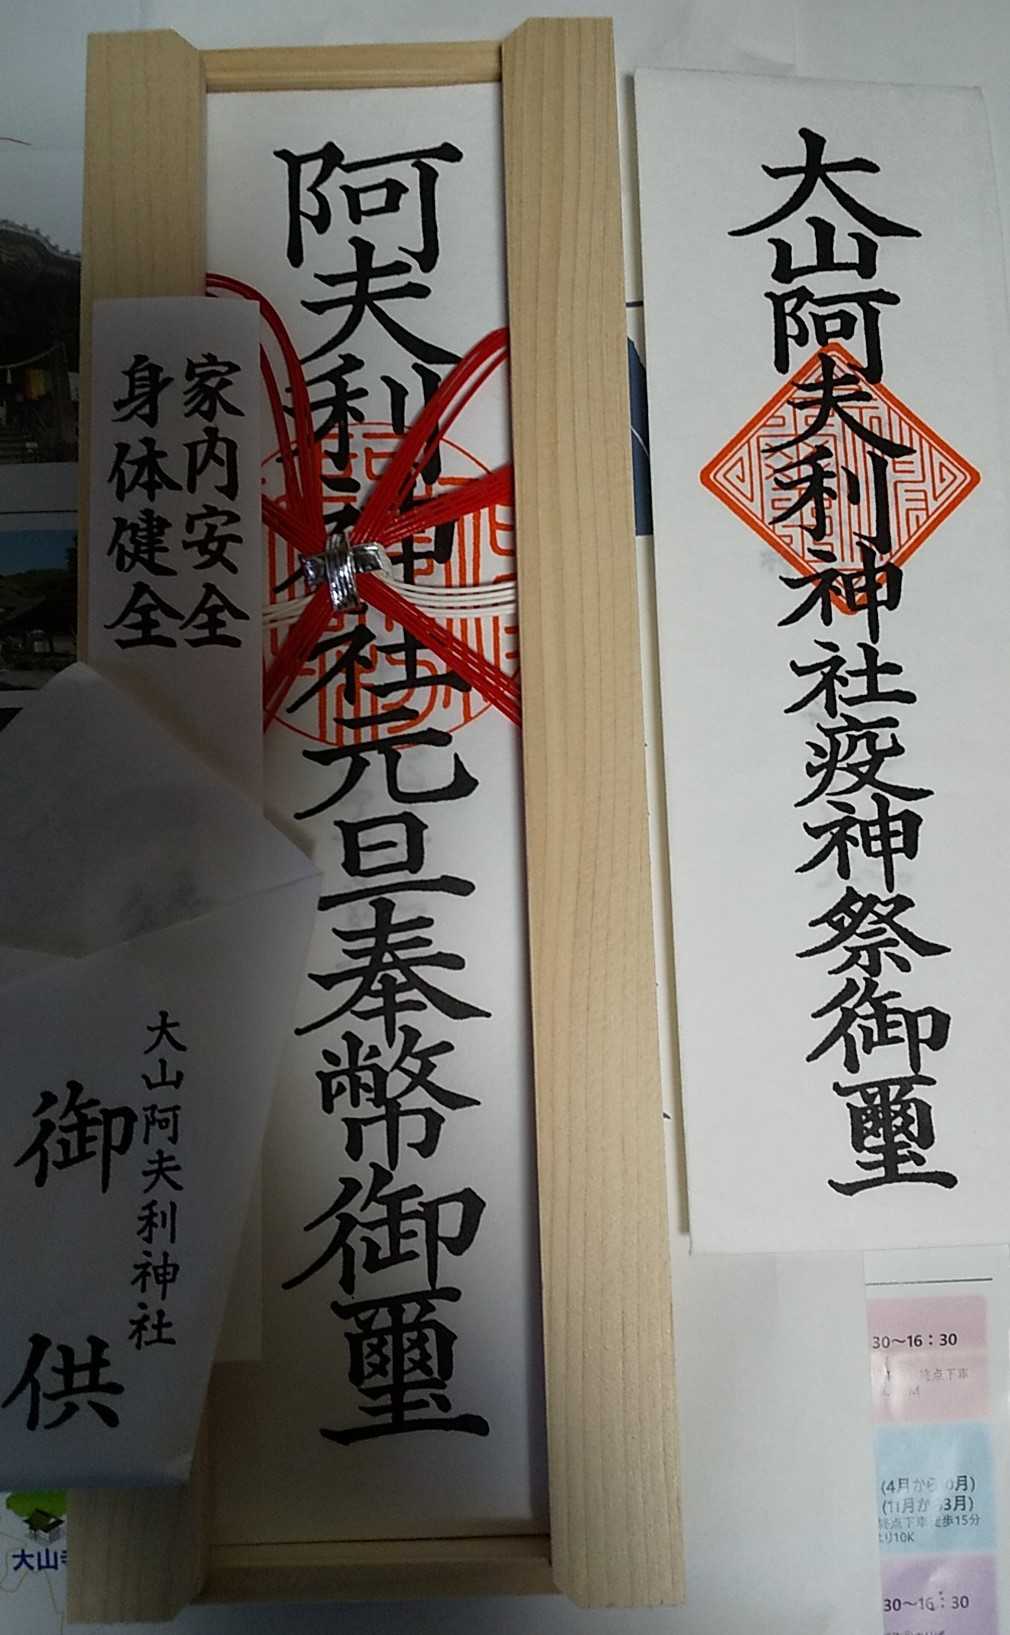 大山阿夫利神社疫神祭御璽
阿夫利神社元旦奉幣御璽
家内安全
身体健全
大山阿夫利神社
御供
大山寺
30～16：30
終点下車
(4月から
月)
(11月か
3月)
終点下車 徒歩15分
より10K
30～16：30